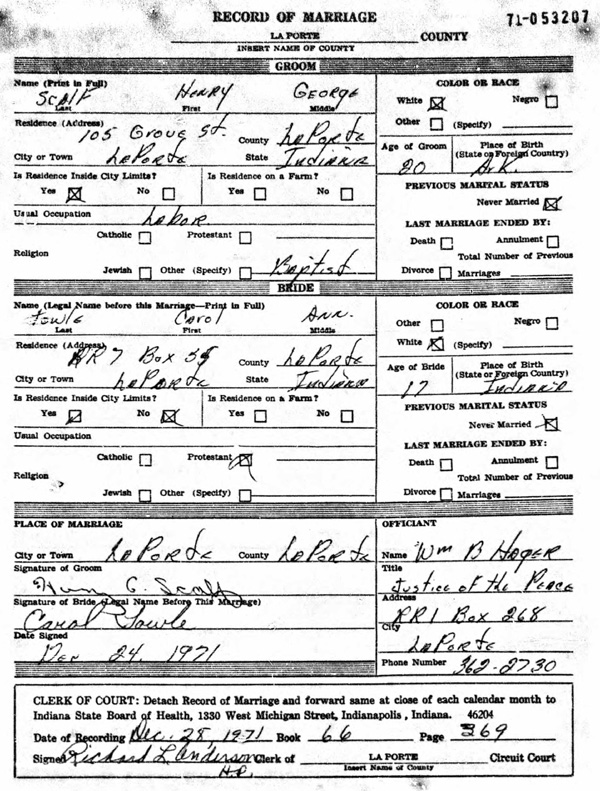 RECORD OF MARRIAGE
71-053207
LA PORTE COUNTY
INSERT NAME OF COUNTY
GROOM
Name (Print in Full)
Scalf Henry George
Last First Middle
Residence (Address) 105 Grove St. County LaPorte
City or Town LaPorte State Indiana
Is Residence Inside City Limits? Is Residence on a Farm?
Yes ☒ No ☐ Yes ☐ No ☐
Usual Occupation Labor.
Catholic ☐ Protestant ☐
Religion
Jewish ☐ Other (Specify) ☐ Baptist
COLOR OR RACE
White ☒ Negro ☐
Other ☐ (Specify)
Age of Groom Place of Birth
(State or Foreign Country)
20 Ark.
PREVIOUS MARITAL STATUS
Never Married ☒
LAST MARRIAGE ENDED BY:
Death ☐ Annulment ☐
Total Number of Previous
Divorce ☐ Marriages
BRIDE
Name (Legal Name before this Marriage—Print in Full)
Towle Carol Ann.
Last First Middle
Residence (Address) RR7 Box County LaPorte
City or Town LaPorte State Indiana
Is Residence Inside City Limits? Is Residence on a Farm?
Yes ☑ No ☒ Yes ☐ No ☐
Usual Occupation
Catholic ☐ Protestant ☒
Religion
Jewish ☐ Other (Specify) ☐
COLOR OR RACE
Other ☐ Negro ☐
White ☒ (Specify)
Age of Bride Place of Birth
(State or Foreign Country)
17 Indiana
PREVIOUS MARITAL STATUS
Never Married ☒
LAST MARRIAGE ENDED BY:
Death ☐ Annulment ☐
Total Number of Previous
Divorce ☐ Marriages
PLACE OF MARRIAGE
City or Town LaPorte County LaPorte
Signature of Groom
Henry G. Scalf
Signature of Bride (Legal Name Before This Marriage)
Carol Towle
Date Signed
Dec 24, 1971
OFFICIANT
Name Wm B Hager
Title
Justice of the Peace
Address
RR1 Box 268
City
LaPorte
Phone Number 362-2730
CLERK OF COURT: Detach Record of Marriage and forward same at close of each calendar month to
Indiana State Board of Health, 1330 West Michigan Street, Indianapolis, Indiana. 46204
Date of Recording Dec. 28 1971 Book 66 Page 369
Signed Richard L. Anderson Clerk of LA PORTE Circuit Court
H.P. Insert Name of County